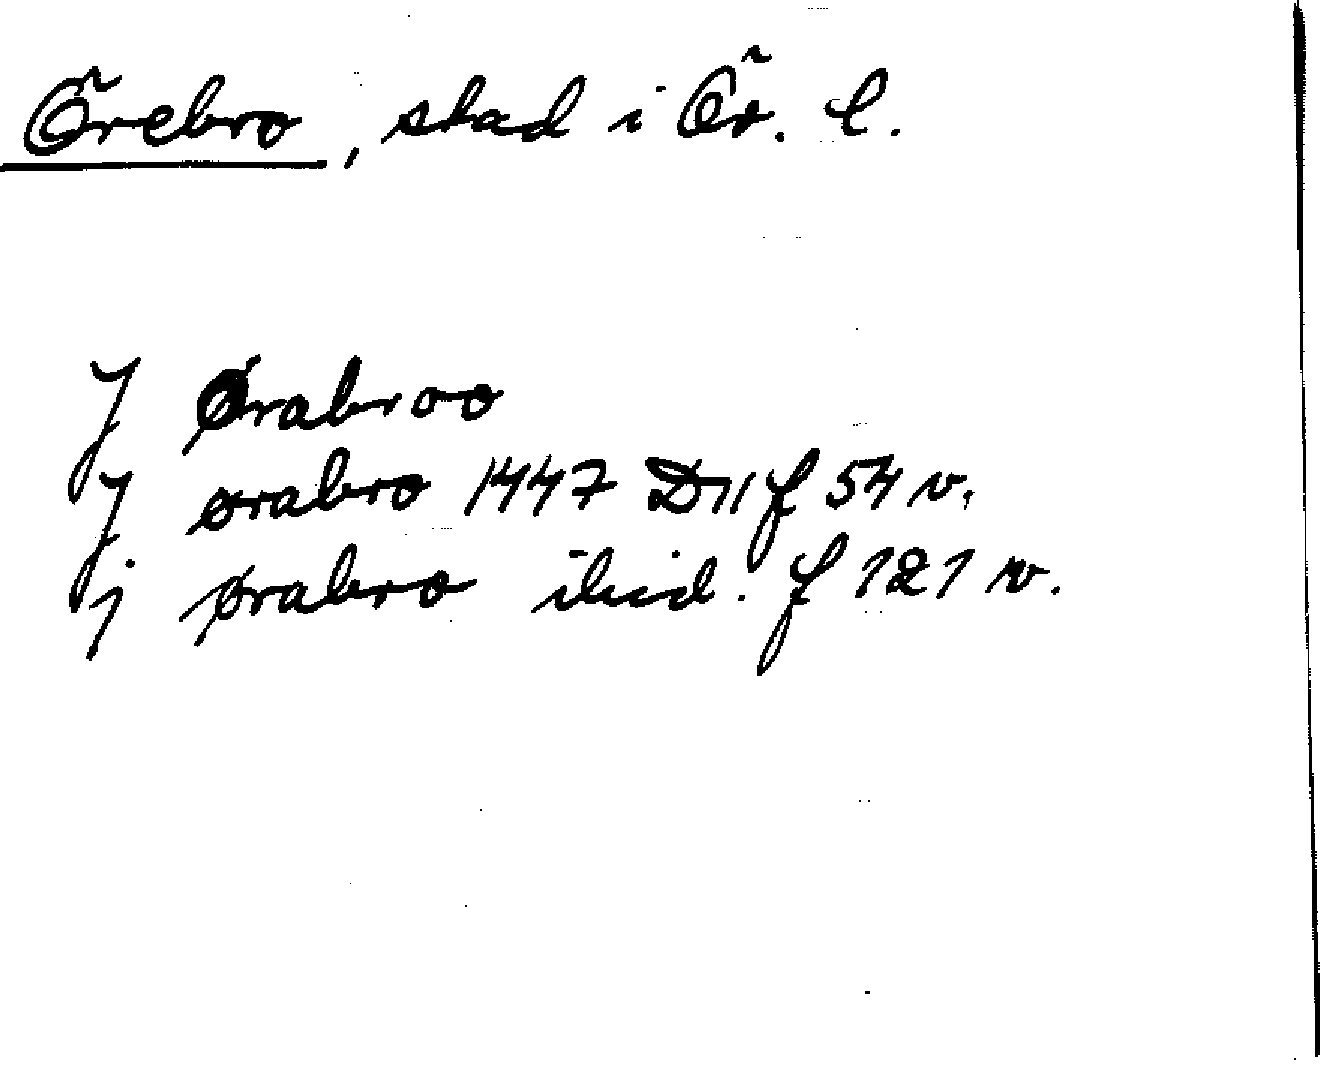 Örebro, stad i Ör. l.
J Ørabroo
J ørabro 1447 D11 f 54 v.
j ørabro ibid. f 121 v.